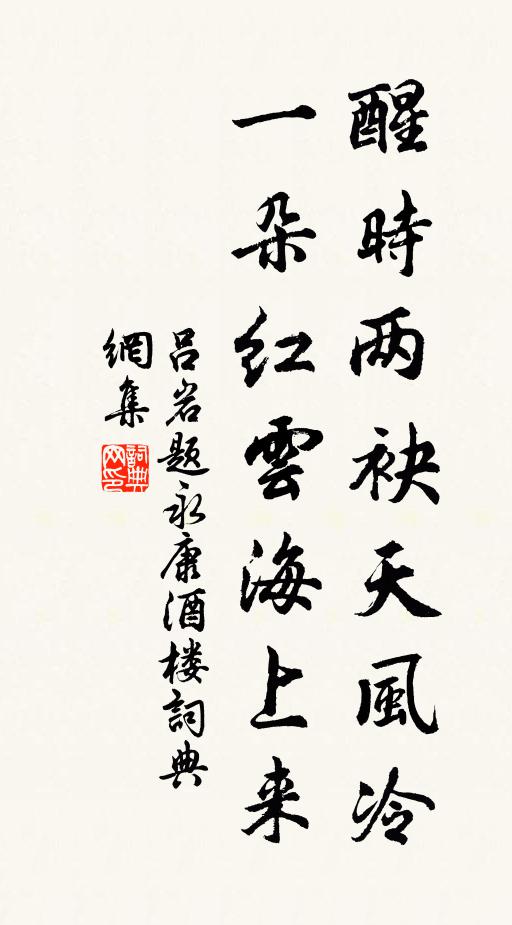 醒時两袂天風冷
一朵红雲海上来
吕岩题永康酒楼詞典
網集
詞典
网印